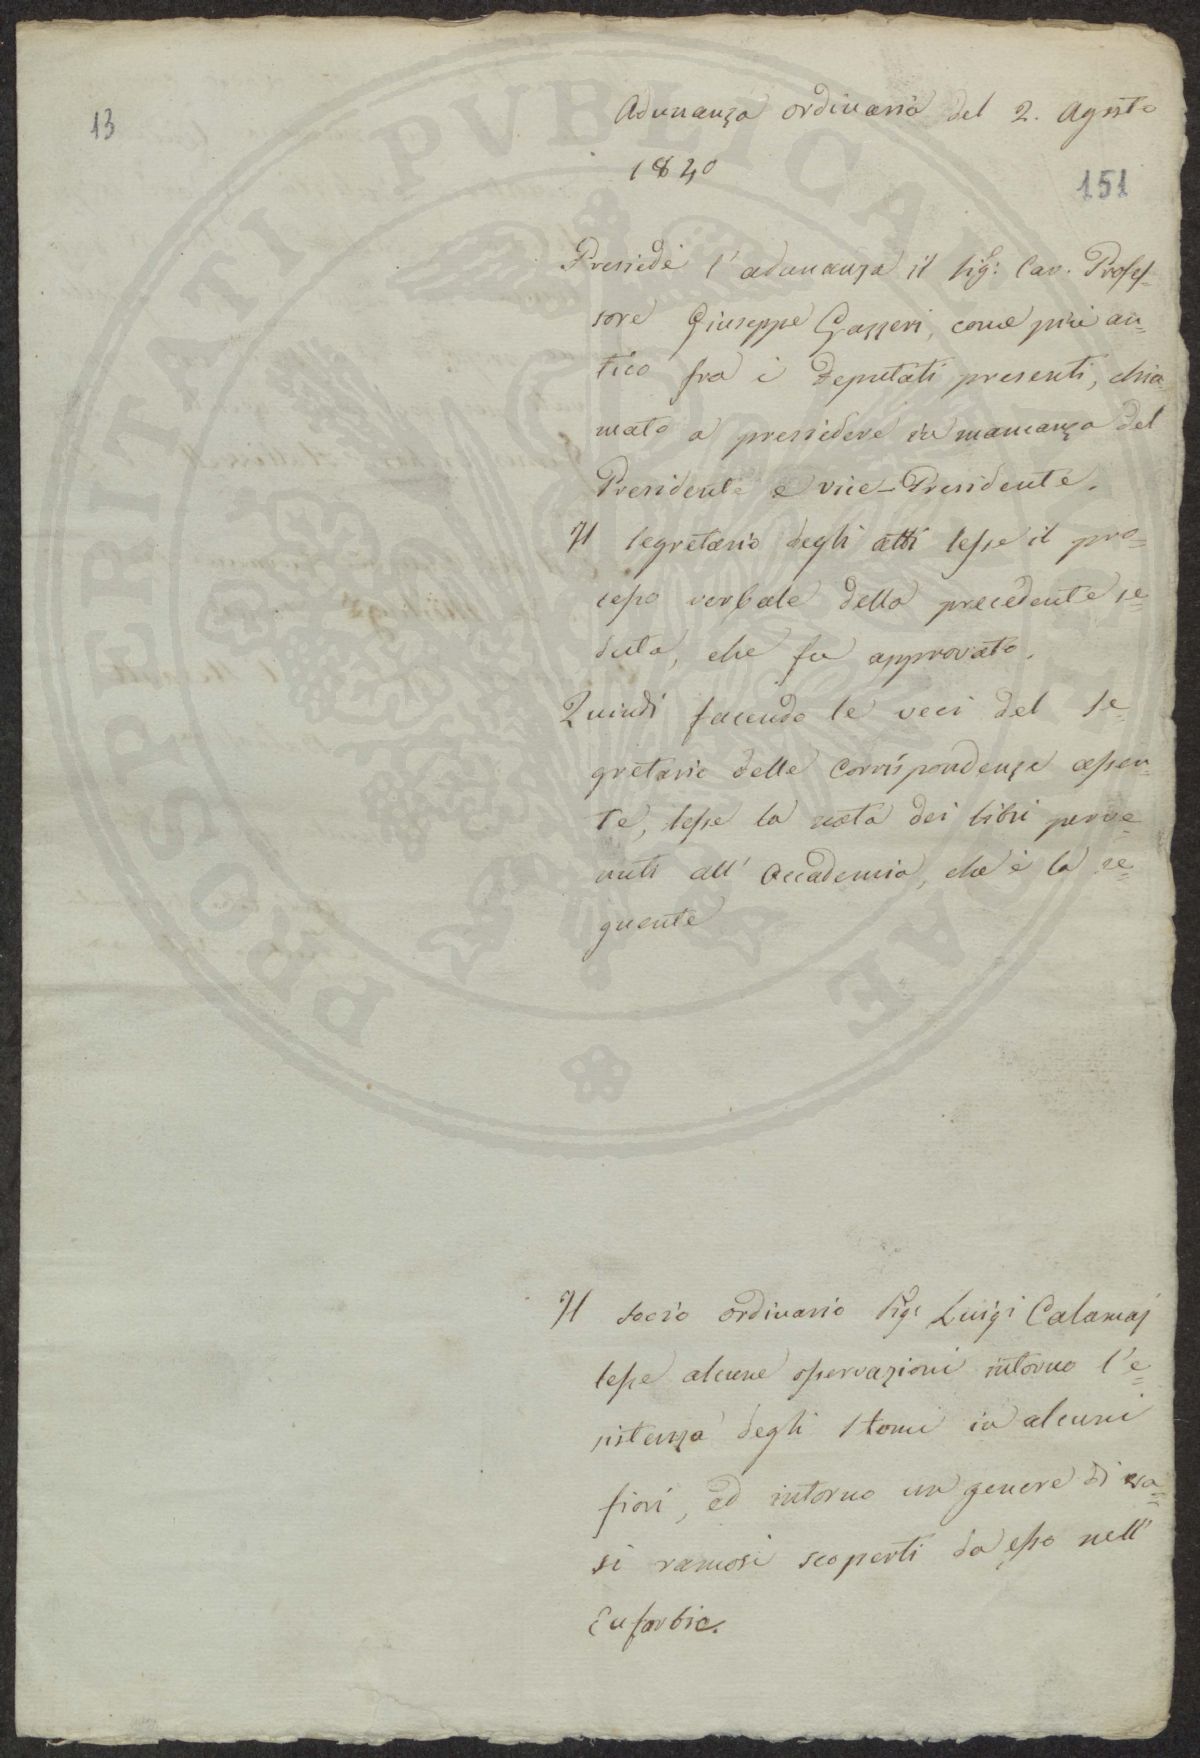 13
Adunanza ordinaria del 2. Agosto
1840
151
Presiede l'adunanza il Sig: Cav. Profes=
sore Giuseppe Gazzeri, come più an=
tico fra i Deputati presenti, chia=
mato a presiedere in mancanza del
Presidente e Vice-Presidente.
Il Segretario degli atti lesse il pro=
cesso verbale della precedente se=
duta, che fu approvato.
Quindi facendo le veci del Se=
gretario delle Corrispondenze assen=
te, lesse la nota dei libri perve=
nuti all'Accademia, che è la se=
guente
Il socio ordinario Sig: Luigi Calamaj
lesse alcune osservazioni intorno l'e=
sistenza degli stomi in alcuni
fiori, ed intorno un genere di va=
si ramosi scoperti da esso nell'
Euforbie.
PROSPERITATI PVBLICAE AVGENDAE